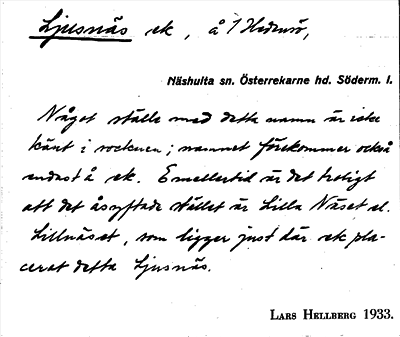 Ljusnäs ek, å 1 Hedensö,
Näshulta sn. Österrekarne hd. Söderm. l.
Något ställe med detta namn är icke
känt i socknen; namnet förekommer också
endast å ek. Emellertid är det troligt
att det åsyftade stället är Lilla Näset el.
Lillnäset, som ligger just där ek pla-
cerat detta Ljusnäs.
LARS HELLBERG 1933.